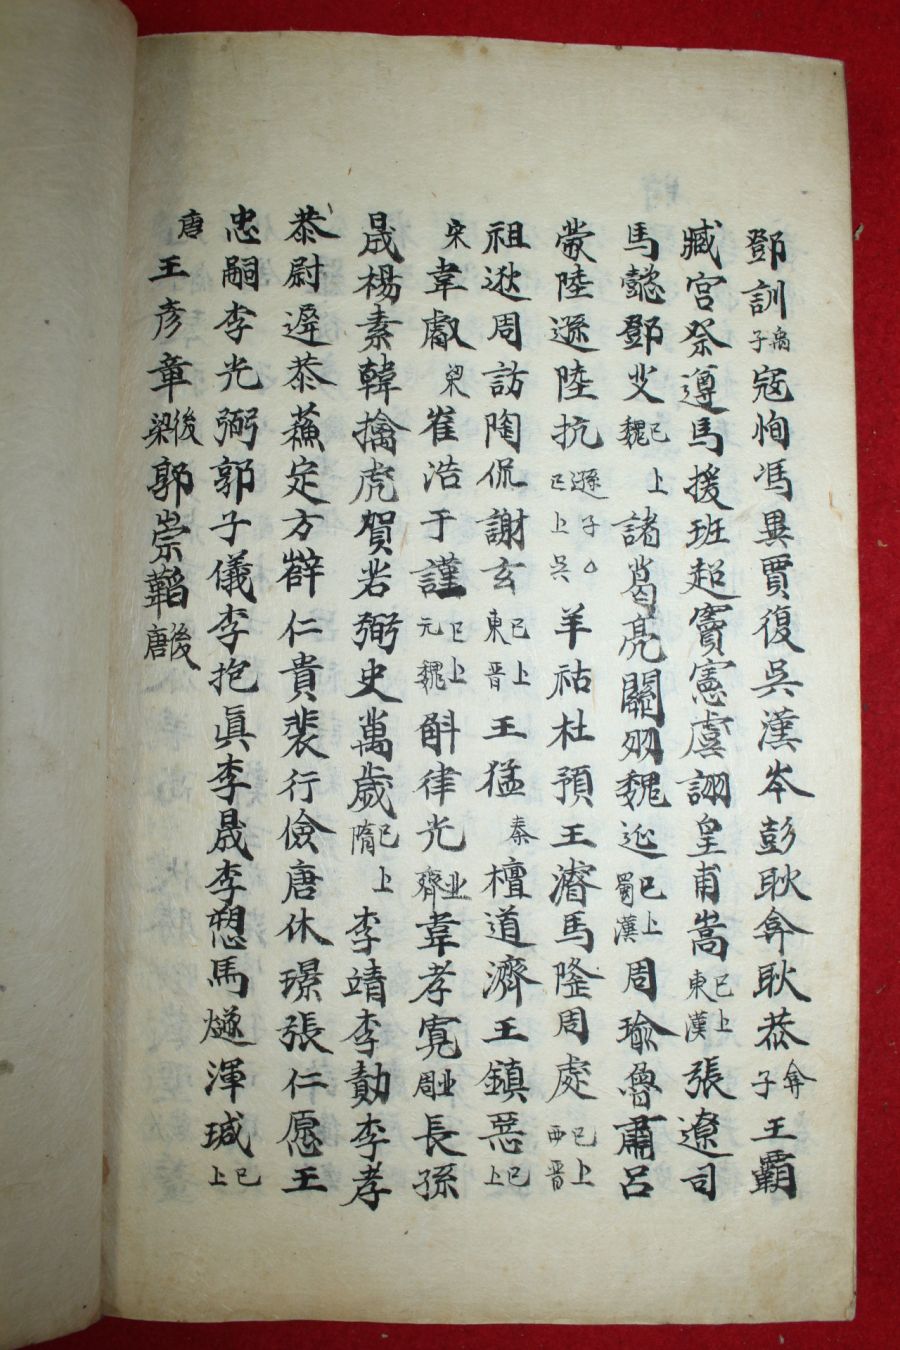 鄧訓禹子寇恂馮異賈復吳漢岑彭耿弇耿恭弇子王霸
臧宮祭遵馬援班超竇憲虞詡皇甫嵩已上東漢張遼司
馬懿鄧艾已上魏諸葛亮關羽魏延已上蜀漢周瑜魯肅呂
蒙陸遜陸抗遜子○已上吳羊祜杜預王濬馬隆周處已上西晉
祖逖周訪陶侃謝玄已上東晉王猛秦檀道濟王鎭惡已上
宋韋叡梁崔浩于謹已上元魏斛律光北齊韋孝寬北周長孫
晟楊素韓擒虎賀若弼史萬歲已上隋李靖李勣李孝
恭尉遲恭蘇定方薛仁貴裴行儉唐休璟張仁愿王
忠嗣李光弼郭子儀李抱眞李晟李愬馬燧渾瑊已上
唐王彦章後梁郭崇韜後唐